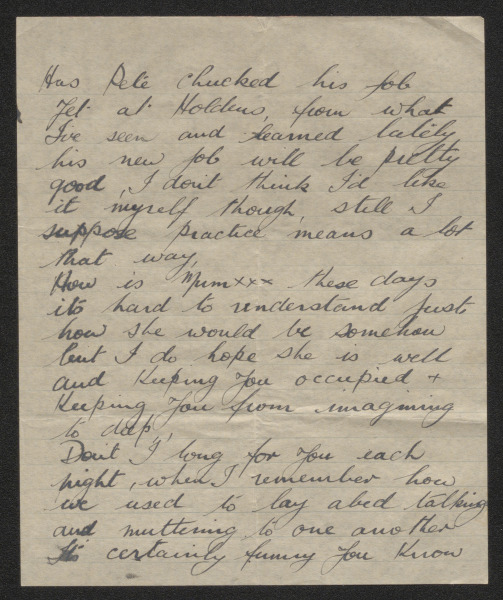 Has Pete chucked his job
yet at Holdens, from what
I've seen and learned lately
his new job will be pretty
good, I don't think I'd like
it myself though, still I
suppose practice means a lot
that way,
How is Mum xxx these days
its hard to understand just
how she would be somehow
but I do hope she is well
and keeping you occupied +
keeping you from imagining
to deep,
Don't I long for you each
night, when I remember how
we used to lay abed talking
and muttering to one another
Its certainly funny you know